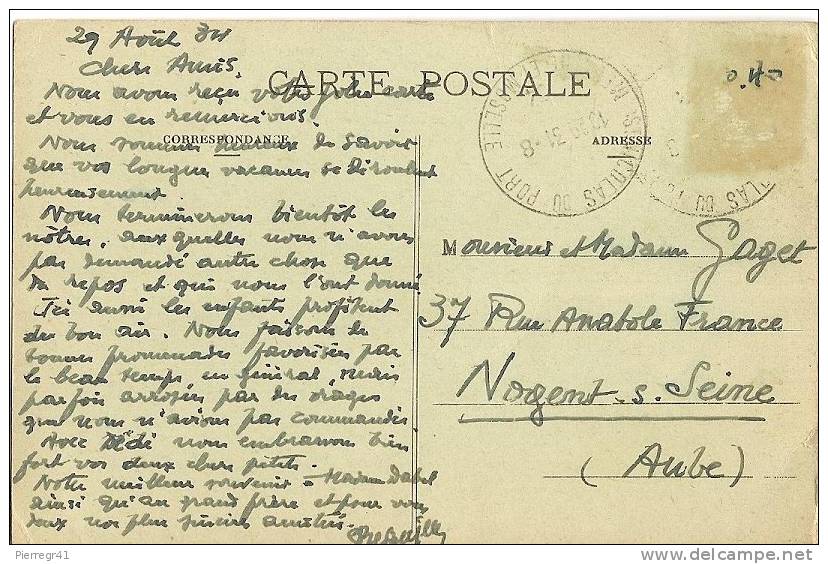 29 Août 34
Chers Amis,
CARTE POSTALE
Nous avons reçu votre jolie carte
et vous en remercions.
CORRESPONDANCE
ADRESSE
Nous sommes heureux de savoir
que vos longues vacances se déroulent
heureusement.
Nous terminerons bientôt les
nôtres, auxquelles nous n'avons
pas demandé autre chose que
du repos et qui nous l'ont donné.
Ici aussi les enfants profitent
du bon air. Nous faisons de
bonnes promenades favorisées par
le beau temps, en général, mais
parfois arrosées par des orages
que nous n'avions pas commandés
Avec Dédé nous embrassons bien
fort vos deux chers petits.
Notre meilleur souvenir à Madame
ainsi qu'au grand frère et pour vous
deux nos plus sincères amitiés.
0.40
ST NICOLAS DU PORT
MEURTHE-ET-MOSELLE
1330 31-8
LAS DU
Monsieur et Madame Gaget
37 Rue Anatole France
Nogent-s-Seine
(Aube)
Pierregr41
delcampe.net